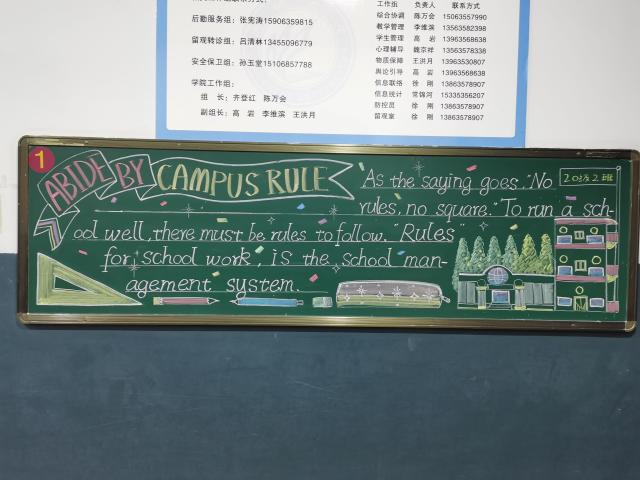 后勤服务组：张宪涛15906359815
留观转诊组：吕清林13455096779
安全保卫组：孙玉堂15106857788
学院工作组：
组 长：齐登红 陈万会
副组长：高 岩 李维滨 王洪月
工作组 负责人 联系方式
综合协调 陈万会 15063557990
教学管理 李维滨 13563582398
学生管理 高 岩 13963568638
心理辅导 魏京祥 13563578338
物质保障 王洪月 13963530807
舆论引导 高 岩 13963568638
信息联络 徐 刚 13863578907
信息统计 常锦河 15335356207
防控员 徐 刚 13863578907
留观室 徐 刚 13863578907
1
ABIDE BY CAMPUS RULE
As the saying goes."No
rules, no square." To run a sch-
ool well, there must be rules to follow. "Rules"
for school work, is the school man-
agement system.